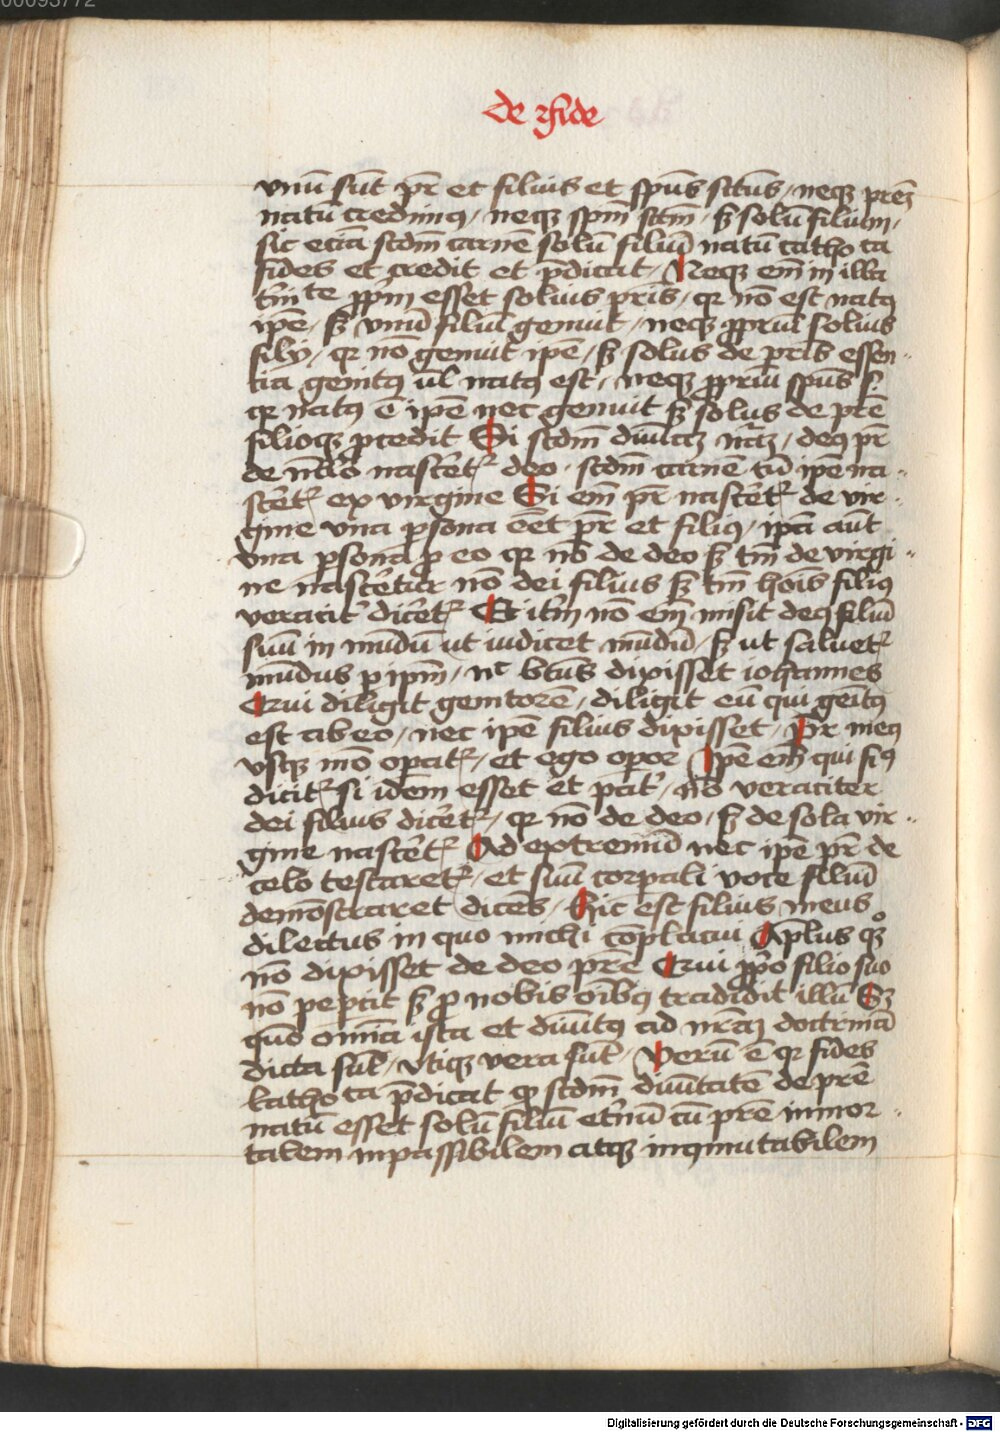 00095772
de xfide
vnū sūt pr̄ et filius et sp̄us sctūs / neqꝫ prēꝫ
natū credimꝯ / neqꝫ sp̄m sctm̄ / sꝫ solū filium /
sic eciā scdm̄ carnē solū filiū natū catho ca
fides et credit et p̄dicat / Neqꝫ em̄ in illa
esset solius pris̄ / qr nō est natꝯ
ip̄e / sꝫ vnū filiū genuit / neqꝫ ꝓpriū solius
filij / qr nō genuit ip̄e / sꝫ solus de pris̄ essen
tia genitꝯ ul̄ natꝯ est / neqꝫ ꝓpriū sp̄us s.
qr natꝯ ē ip̄e nec genuit sꝫ solus de prē
filioqꝫ ꝓcedit Si scdm̄ diuītaꝫ nr̄aꝫ / deꝯ pr̄
de nascēt᷑ deo / scdm̄ carnē tū ip̄e na
scēt᷑ ex virgine Si em̄ pr̄ nascēt᷑ de vir
gine vna ꝑsona eēt pr̄ et filiꝯ / ip̄a aūt
vna ꝑsona ꝓ eo qr nō de deo sꝫ tm̄ de virgi
ne nascēt̄ur nō dei filius sꝫ tm̄ hoīs filiꝯ
veracit᷑ dicēt᷑ Et itm̄ nō em̄ misit deꝯ filiū
suū in mūdū ut iudicet mūdū / sꝫ ut saluet᷑
mūdus ꝑ ip̄m / nc btūs dixisset iohannes
Qui diligit genitorē / diligit eū qui genitꝯ
est ab eo / nec ip̄e filius dixisset / Pr̄ meꝯ
vsqꝫ mō oꝑat᷑ / et ego oꝑor Ip̄e em̄ qui fiꝯ
dicit᷑ si idem esset et / nō veraciter
dei filius dicēt᷑ / qr nō de deo / sꝫ de sola vir
gine nascēt᷑ Ad extremū nec ip̄e pr̄ de
celo testaret᷑ / et suū corꝑali voce filiū
demōstraret dicēs / Hic est filius meus
dilectus in quo michi cōplacui Apl̄us qꝫ
nō dixisset de deo prē Qui ꝓp̄o filio suo
nō peꝑcit sꝫ ꝓ nobis oīb̄ꝯ tradidit illū Sꝫ
qūo omīa ista et diuītꝯ ad nr̄aꝫ doctrinā
dicta sūt / vtiqꝫ vera sūt / Verū ē qr fides
katho ca p̄dicat ꝙ scdm̄ diuītatē de prē
natū esset solū filiū et̄nū cū prē inmor
talem inpassibilem atqꝫ inqmutabilem
Digitalisierung gefördert durch die Deutsche Forschungsgemeinschaft - DFG